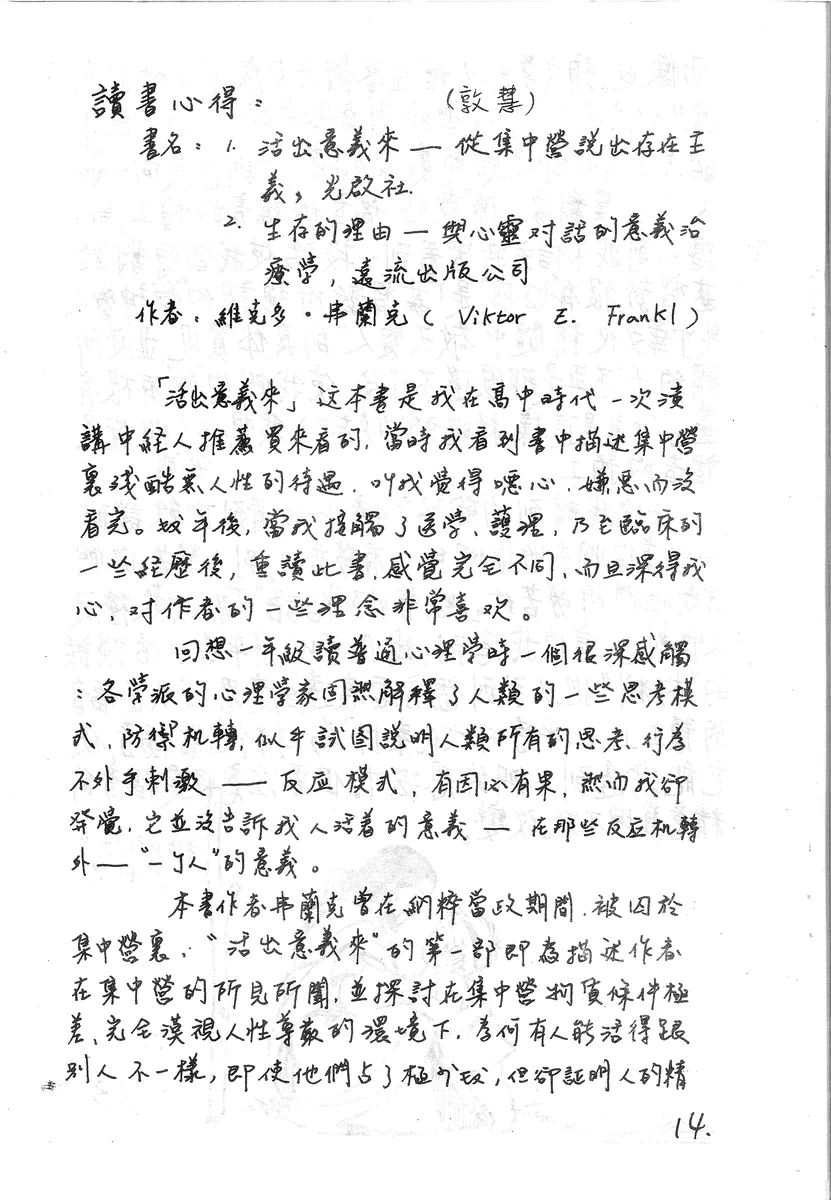 讀書心得： （敦慧）
書名：1. 活出意義來 — 從集中營說出存在主
義，光啟社.
2. 生存的理由 — 與心靈对話的意義治
療學，遠流出版公司
作者：維克多·弗蘭克（Viktor E. Frankl）
「活出意義來」这本書是我在高中時代一次演
講中経人推薦買來看的，當時我看到書中描述集中營
裏殘酷無人性的待遇，叫我覺得噁心、嫌惡而沒
看完。数年後，當我接觸了医學、護理，乃至臨床的
一些経歷後，重讀此書，感覺完全不同，而且深得我
心，对作者的一些理念非常喜欢。
回想一年級讀普通心理學時一個很深感觸
：各學派的心理學家固然解釋了人類的一些思考模
式、防禦机轉，似乎試图說明人類所有的思考、行為
不外乎刺激 —— 反应模式，有因必有果，然而我卻
發覺，它並沒告訴我人活着的意義 — 在那些反应机轉
外 —— “一个人”的意義。
本書作者弗蘭克曾在納粹當政期間，被囚於
集中營裏，“活出意義來”的第一部即為描述作者
在集中營的所見所聞，並探討在集中營物質條件極
差、完全漠視人性尊嚴的環境下，為何有人能活得跟
別人不一樣，即使他們占了極少数，但卻証明人的精
14.